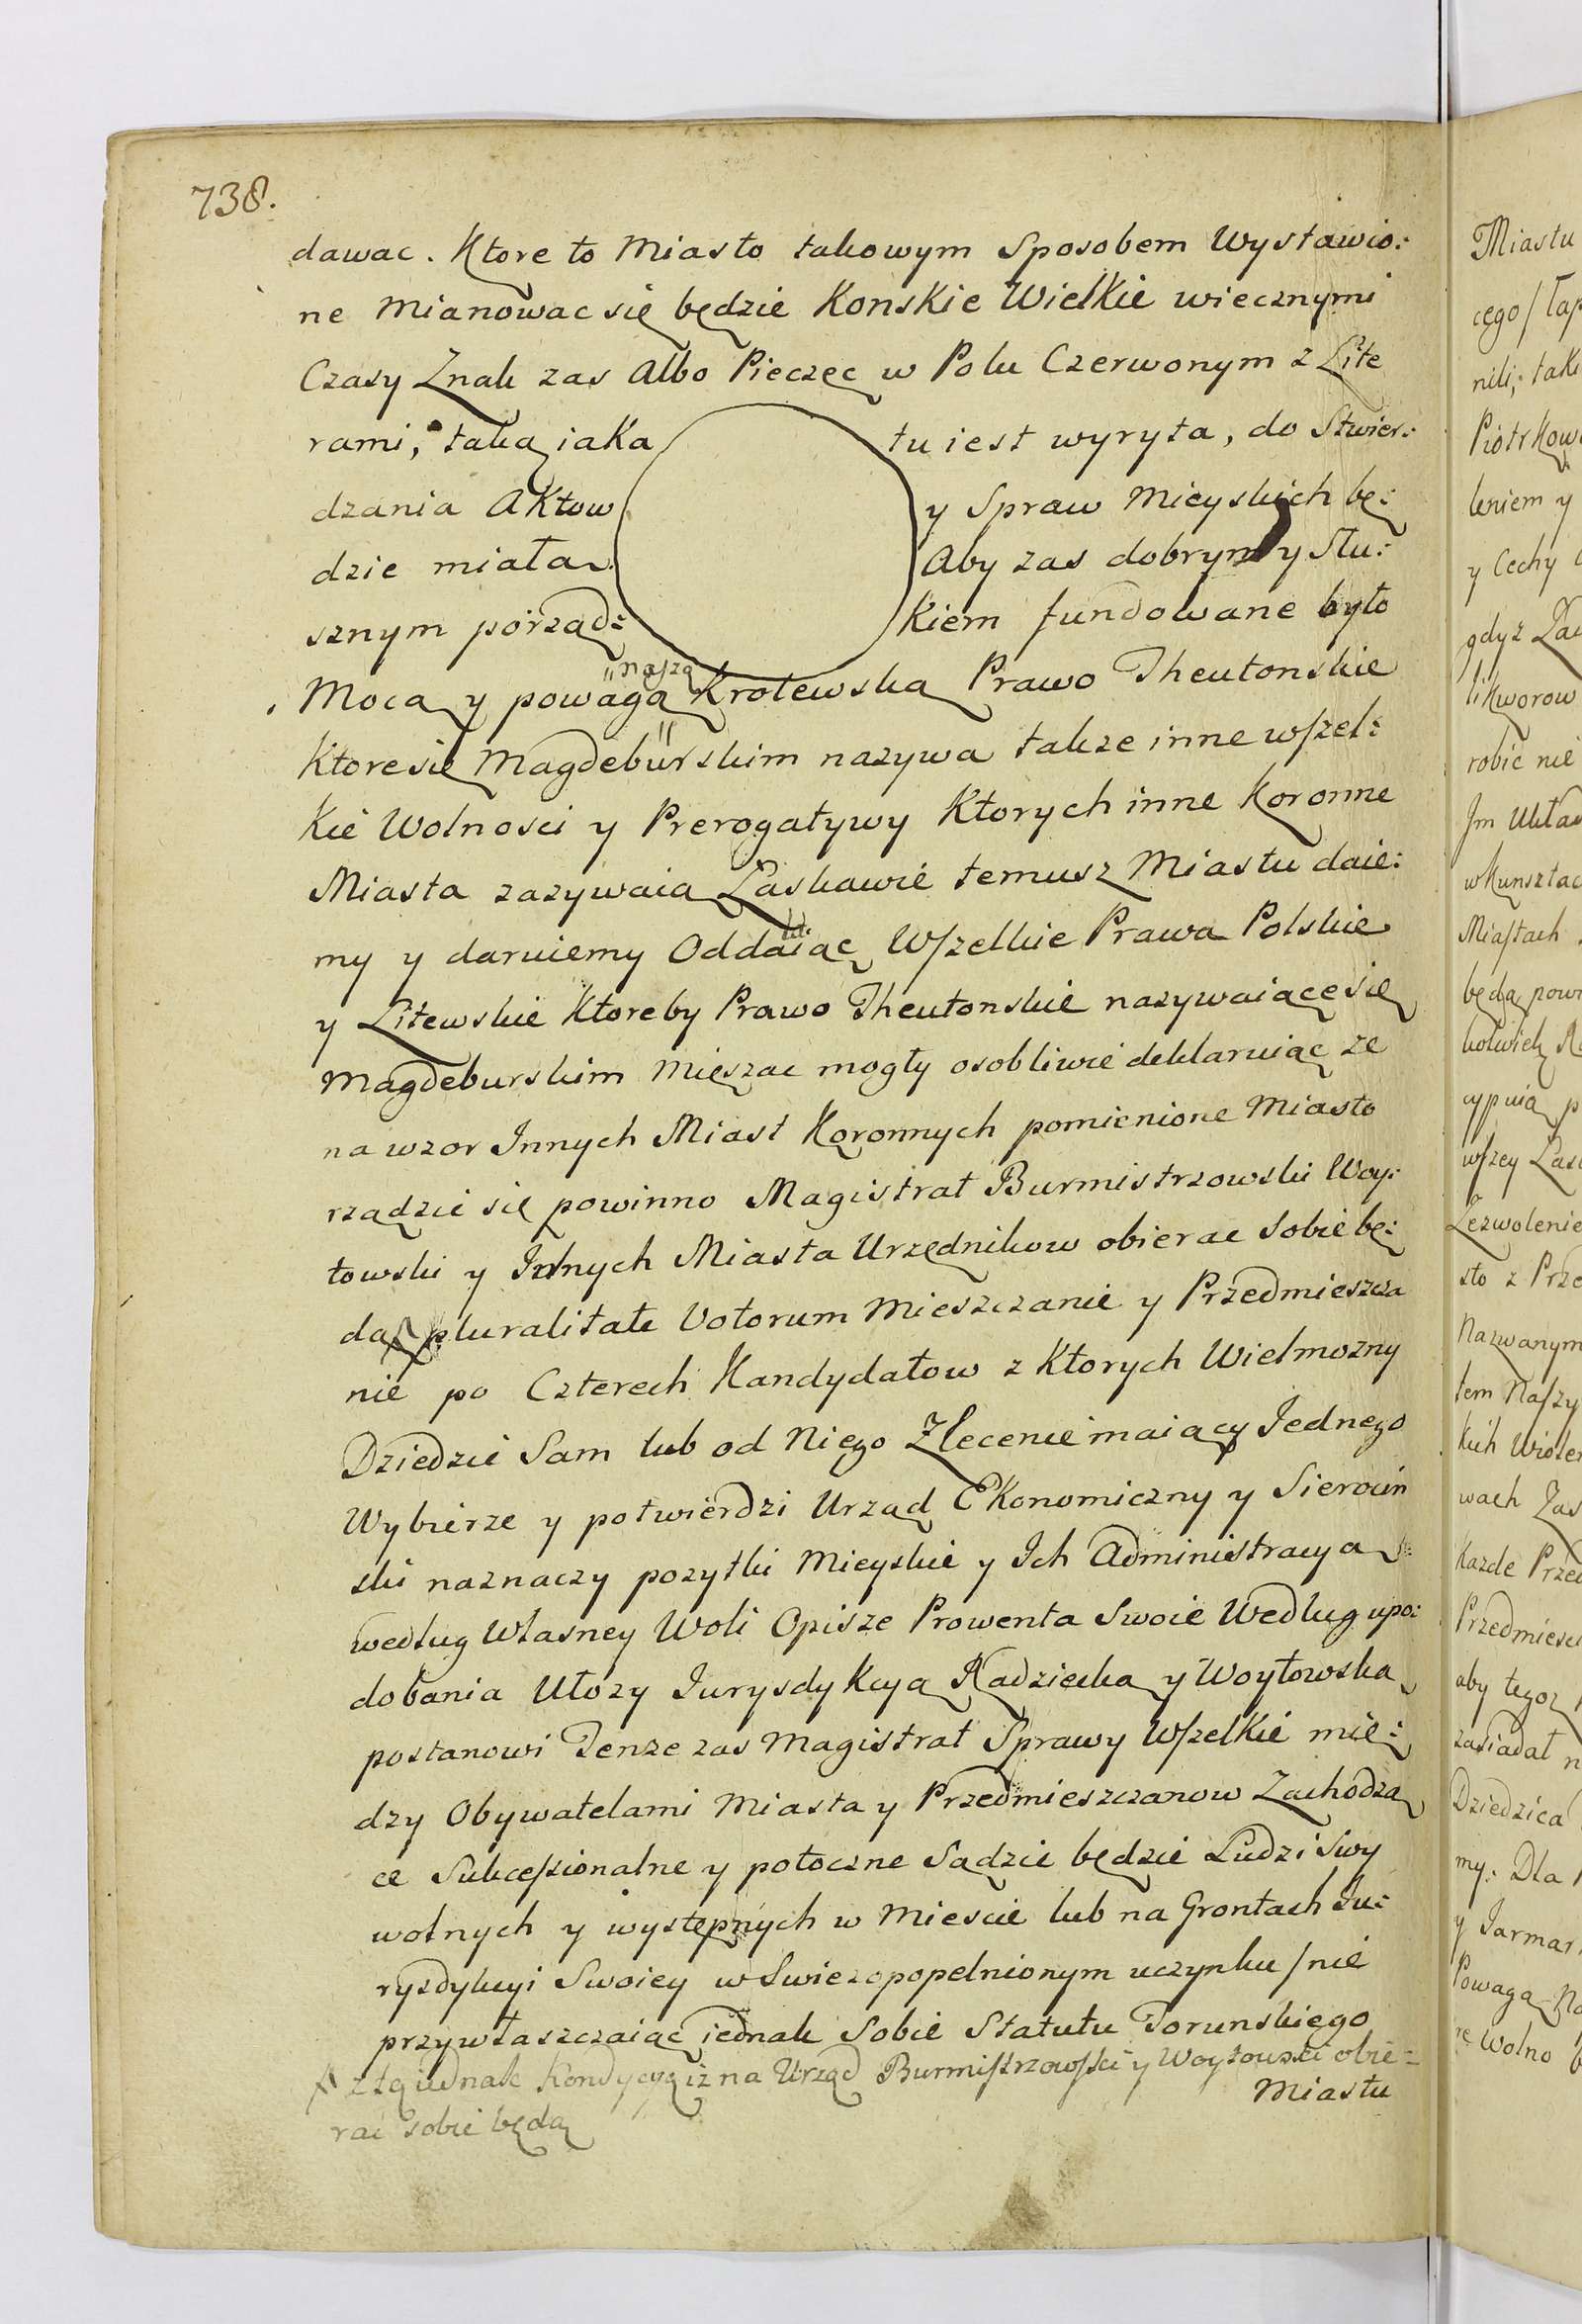 738.
dawac. Ktore to Miasto takowym Sposobem Wystawio:
ne Mianowac się będzie Konskie Wielkie wiecznymi
Czasy Znak zas Albo Pieczęc w Polu Czerwonym z Lite
rami, taką iaka tu iest wyryta, do Stwier:
dzania Aktow y Spraw Mieyskich bę:
dzie miała. Aby zas dobrym y Słu:
sznym porząd: kiem fundowane było
Mocą y powagą naszą Krolewską Prawo Theutonskie
Ktore się Magdeburskim nazywa takze inne wszel:
kie Wolnosci y Prerogatywy Ktorych inne Koronne
Miasta zazywaią Łaskawie temusz Miastu daie:
my y daruiemy Oddalaiąc Wszelkie Prawa Polskie
y Litewskie Ktoreby Prawo Theutonskie nazywaiące się
Magdeburskim Mięszac mogły osobliwie deklaruiąc ze
na wzor Innych Miast Koronnych pomienione Miasto
rządzic się powinno Magistrat Burmistrzowski Woy:
towski y Innych Miasta Urzędnikow obierac Sobie bę:
dą pluralitate Votorum Mieszczanie y Przedmieszcza
nie po Czterech Kandydatow z Ktorych Wielmozny
Dziedzic Sam lub od Niego Zlecenie maiący Iednego
Wybierze y potwierdzi Urząd Ekonomiczny y Sierocin
ski naznaczy pozytki Mieyskie y Ich Administracyą
według Własney Woli Opisze Prowenta Swoie Według upo:
dobania Ułozy Iurysdykcyą Radziecką y Woytowską
postanowi Tenze zas Magistrat Sprawy Wszelkie mię:
dzy Obywatelami Miasta y Przedmieszczanow Zachodzą
ce Sukcessionalne y potoczne Sądzic będzie Ludzi Swy
wolnych y występnych w Miescie lub na Grontach Iu:
rysdykcyi Swoiey w Swiezopopełnionym uczynku / nie
przywłaszczaiąc iednak Sobie Statutu Torunskiego
z tą iednak Kondycyą iz na Urząd Burmistrzowski y Woytowski obie=
Miastu
rac sobie będą
Miastu
nili; tak
leniem y
y Cechy
likworow
robic nie
w Kunsztac
Miastach
Zezwolenie
sto z Prze
Nazwanym
tem Naszy
wach Zas
kazde Przed
aby tegoz
zasiadał n
Dziedzica
my: Dla
y Iarmar
Powagą Na
re Wolno b